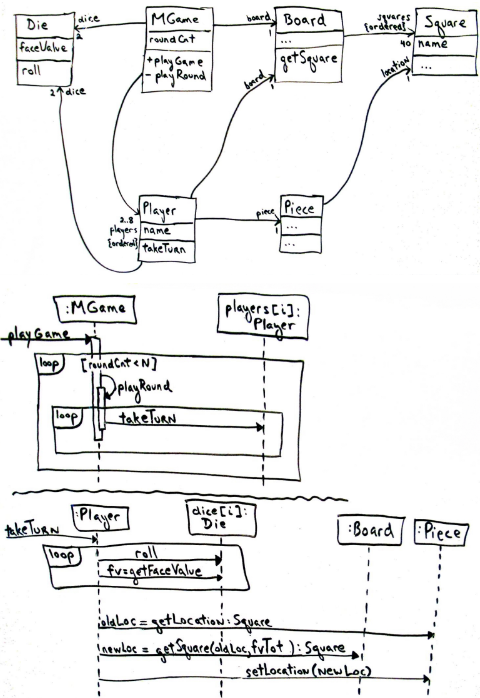 Die
faceValue
roll
dice
2
MGame
roundCnt
+playGame
- playRound
board
1
Board
...
getSquare
squares
{ordered}
40
Square
name
...
2 dice
board
1
location
1
2..8
players
{ordered}
Player
name
takeTurn
piece
1
Piece
...
...
:MGame
players[i]:
Player
playGame
loop
[roundCnt<N]
playRound
loop
takeTurn
:Player
dice[i]:
Die
:Board
:Piece
takeTurn
loop
roll
fv=getFaceValue
oldLoc = getLocation: Square
newLoc = getSquare(oldLoc, fvTot ): Square
setLocation(newLoc)